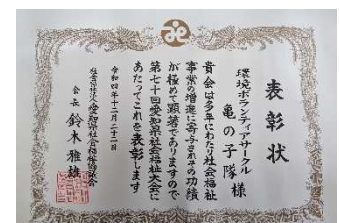 表彰状
環境ボランティアサークル
亀の子隊 様
貴会は多年にわたり社会福祉
事業の増進に寄与されその功績
が極めて顕著でありますので
第七十回愛知県社会福祉大会に
あたってこれを表彰します
令和四年十二月二十一日
社会福祉法人愛知県社会福祉協議会
会長 鈴木雅雄